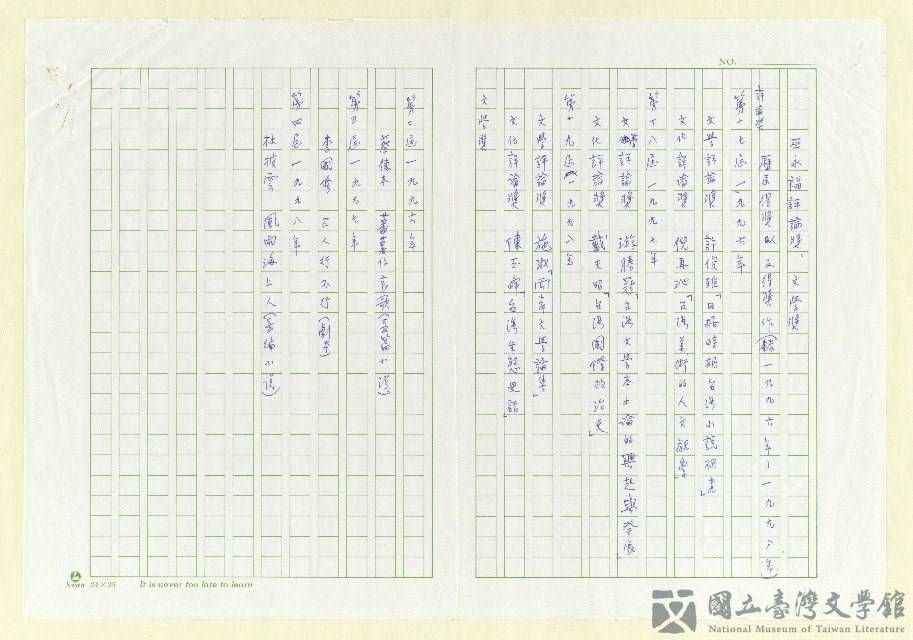 NO.
巫永福評論獎、文學獎
評論獎 歷屆得獎人及得獎作(一九九六年－一九九八年)
第十七屆 一九九六年
文學評論獎 許俊雅「日據時期台灣小說研究」
文化評論獎 倪再沁「台灣美術的人文觀察」
第十八屆 一九九七年
文學評論獎 游勝冠「台灣文學本土論的興起與發展」
文化評論獎 戴天昭「台灣國際政治史」
第十九屆 一九九八年
文學評論獎 施淑「兩岸文學論集」
文化評論獎 陳玉峰「台灣生態史話」
文學獎
第二屆 一九九六年
蔡德本 蕃薯仔哀歌(長篇小說)
第三屆 一九九七年
李國修 三人行不行(劇本)
第四屆 一九九八年
杜披雲 風雨海上人(長編小說)
Swan 24×25 It is never too late to learn
國立臺灣文學館
National Museum of Taiwan Literature